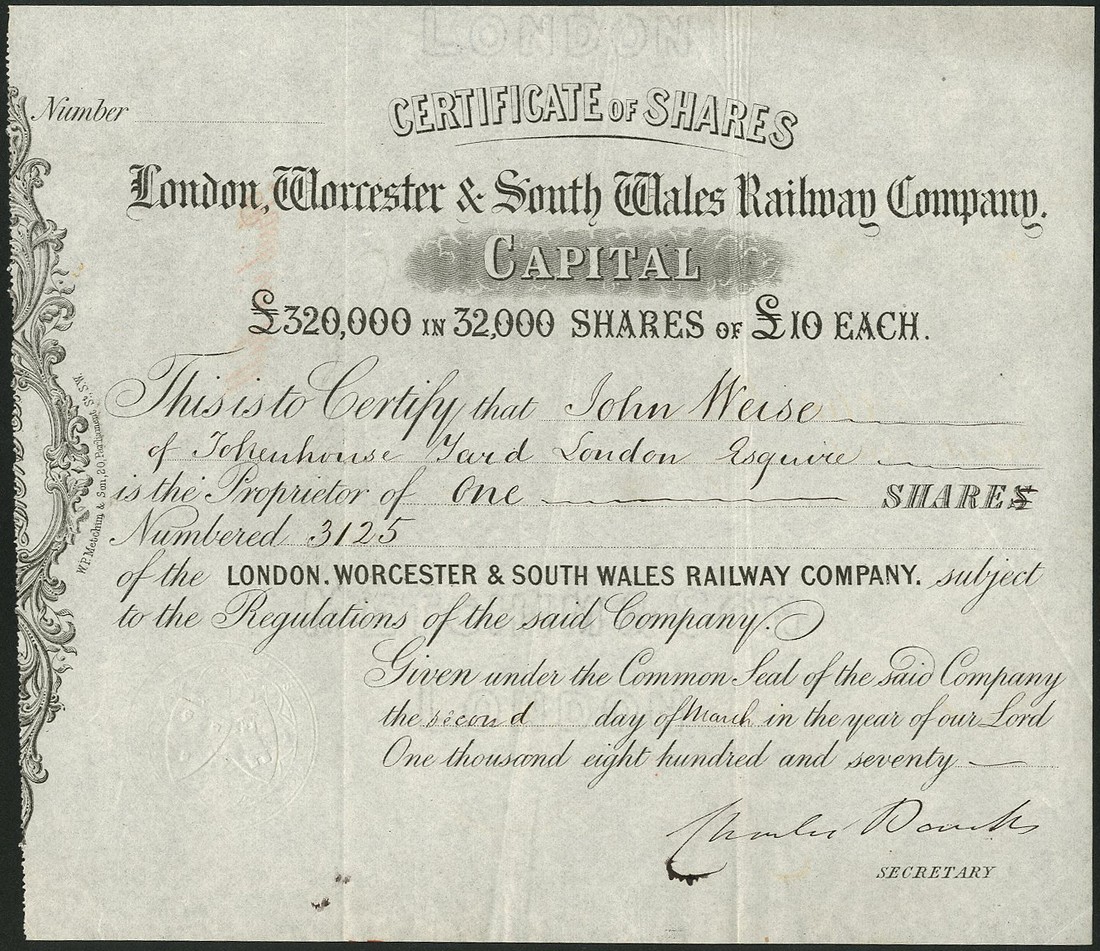 LONDON
Number
CERTIFICATE OF SHARES
London, Worcester & South Wales Railway Company.
CAPITAL
£320,000 IN 32,000 SHARES OF £10 EACH.
This is to Certify that John Weise
of Tokenhouse Yard London Esquire
is the Proprietor of One SHARES
Numbered 3125
of the LONDON. WORCESTER & SOUTH WALES RAILWAY COMPANY. subject
to the Regulations of the said Company.
Given under the Common Seal of the said Company
the second day of March in the year of our Lord
One thousand eight hundred and seventy
Charles
SECRETARY
W.P. Metchim & Son, 20, Parliament St. S.W.